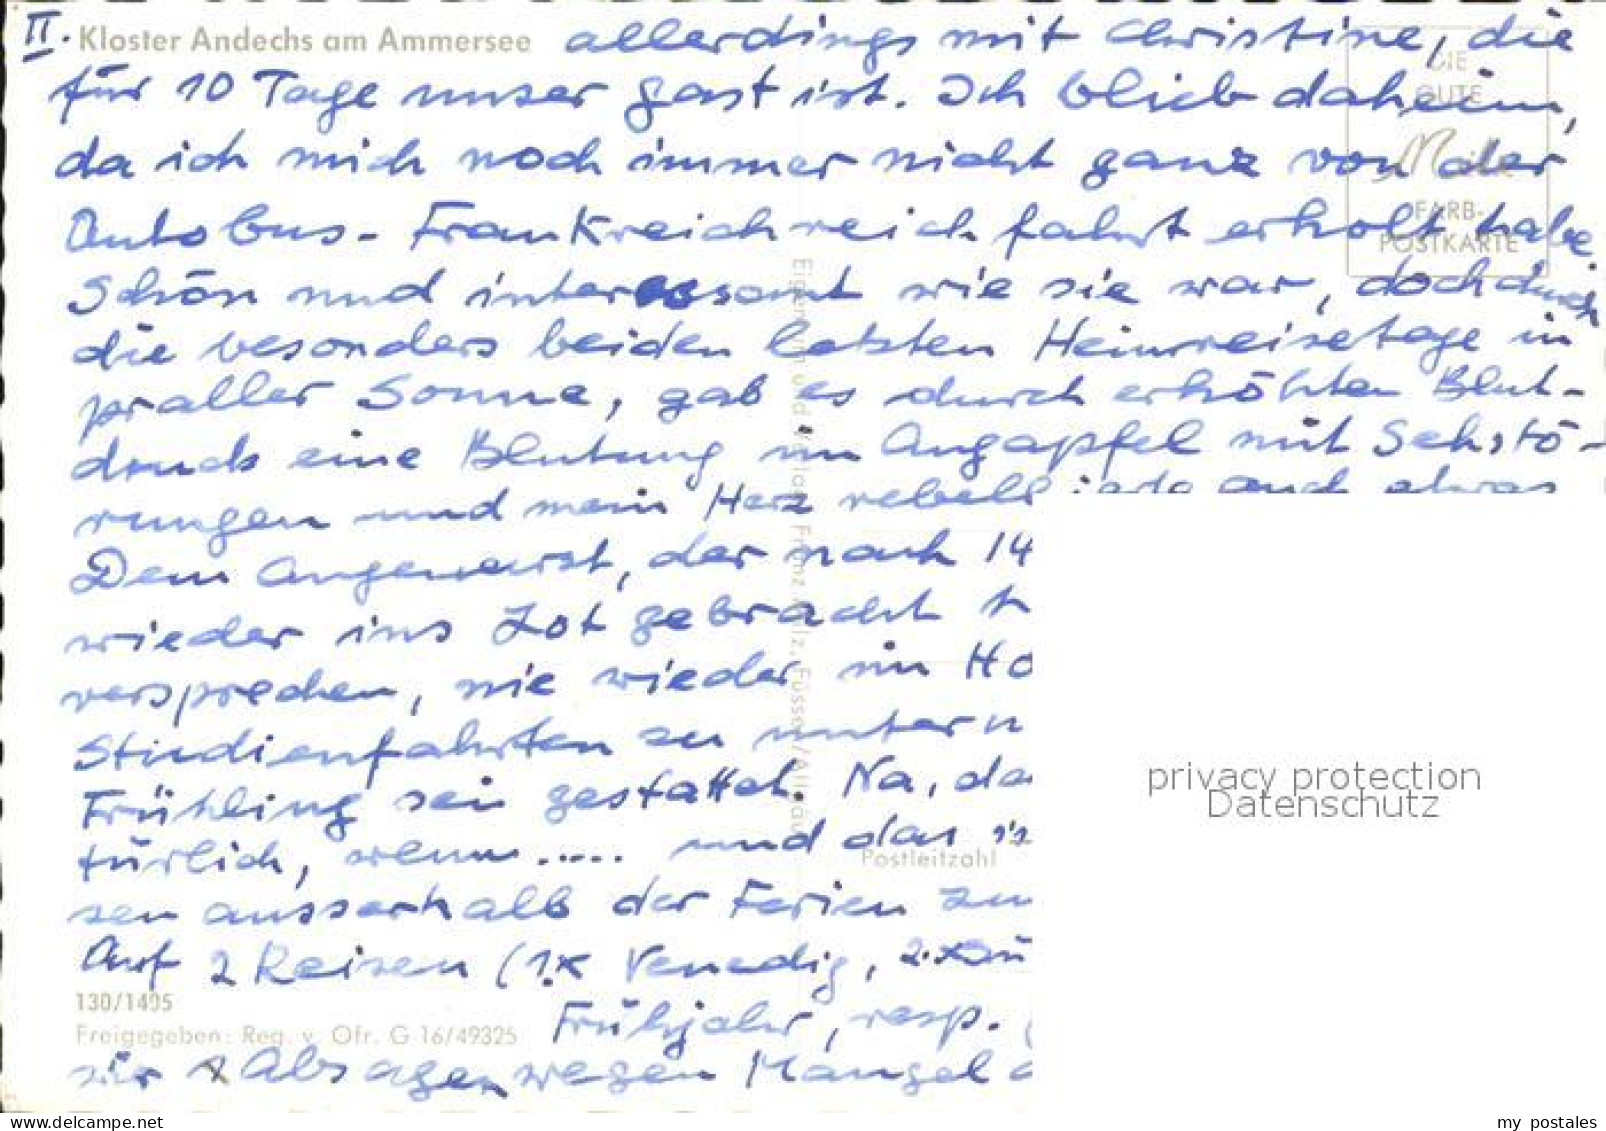 II. Kloster Andechs am Ammersee allerdings mit Christine, die
für 10 Tage unser Gast ist. Ich blieb daheim,
da ich mich noch immer nicht ganz von der
Autobus-Frankreichreich fahrt erholt habe
Schön und interessant wie sie war, doch durch
die besonders beiden letzten Heimreisetage in
praller Sonne, gab es durch erhöhten Blut-
druck eine Blutung im Augapfel mit Sehstö-
rungen und mein Herz rebellierte auch etwas
Dem Augenarzt, der nach 14
wieder ins Lot gebracht h
versprechen, nie wieder im Ho
Studienfahrten zu untern
Frühling sei gestattet. Na, da
türlich, wenn ..... und das is
sen ausserhalb der Ferien zu
Auf 2 Reisen (1x Venedig, 2.x
Frühjahr, resp.
wir x Absagen wegen Mangel a
DIE
GUTE
FARB-
POSTKARTE
Postleitzahl
130/1495
Freigegeben: Reg. v. Ofr. G 16/49325
privacy protection
Datenschutz
delcampe.net
my_postales